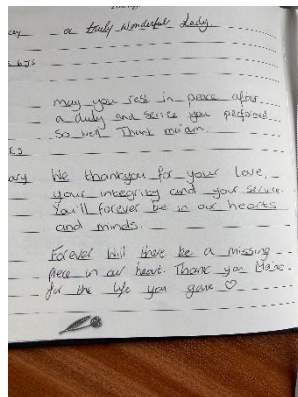 a truly wonderful Lady.
may you rest in peace after
a duty and serice you peformed
so well Thank ma'am.
We thankyou for your love,
your integrity and your service.
You'll forever be in our hearts
and minds.
Forever will there be a missing
piece in our heart. Thank you
for the life you gave ♡